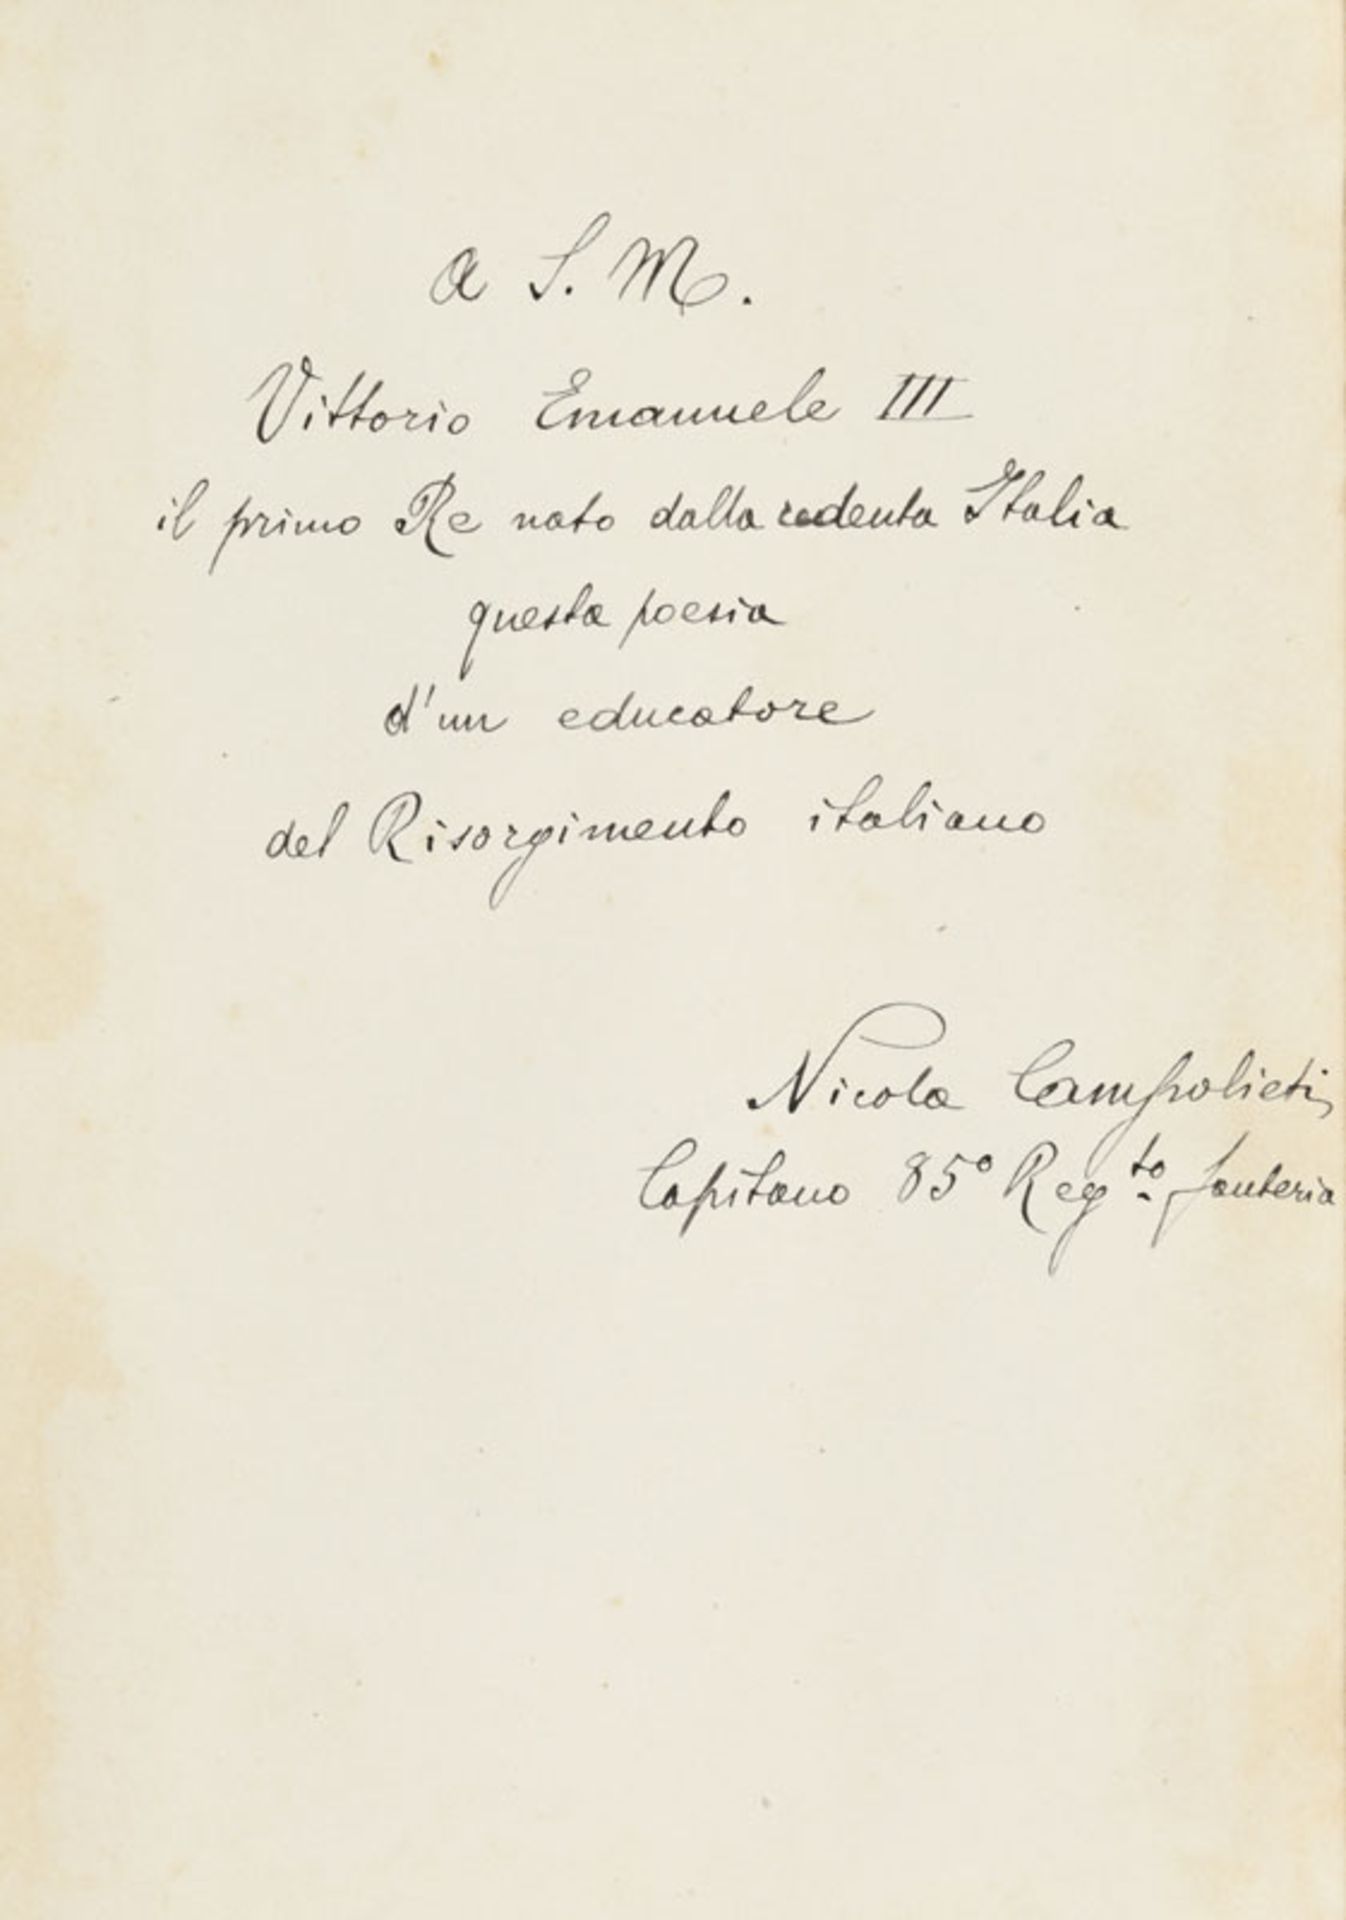 A S. M.
Vittorio Emanuele III
il primo Re nato dalla redenta Italia
questa poesia
d'un educatore
del Risorgimento italiano
Nicola Campolieti,
Capitano 85º Reg.to fanteria